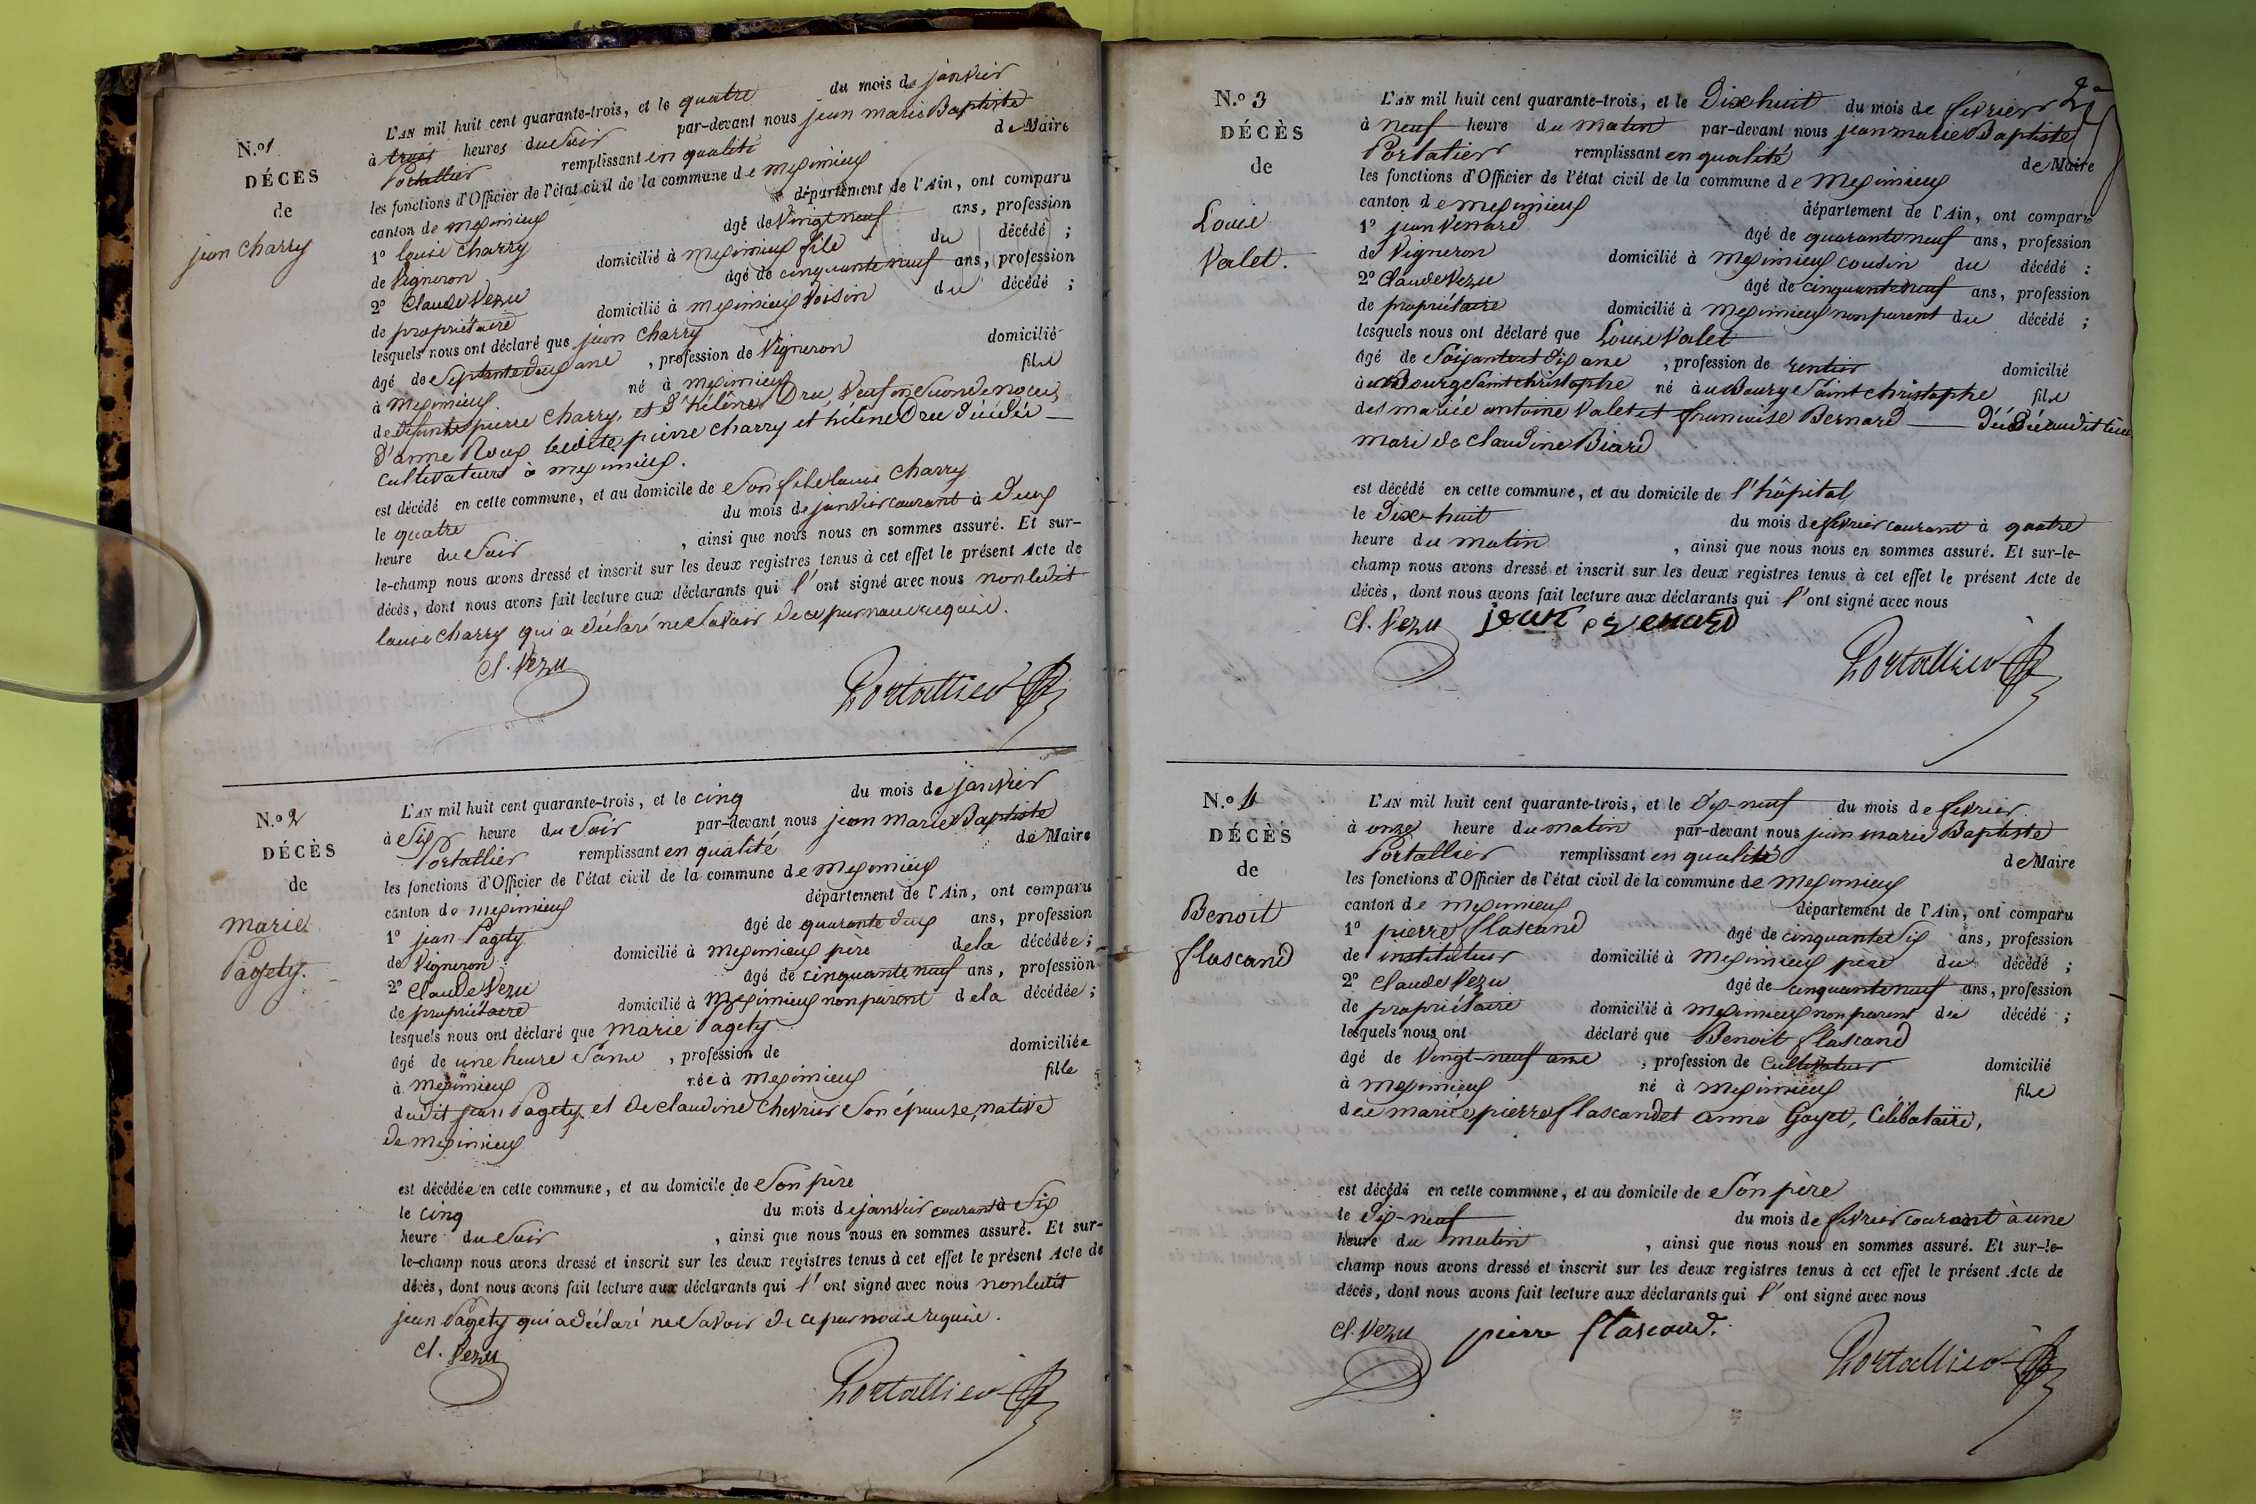 N.o 1
DÉCÈS
de
jean Charry
L'AN mil huit cent quarante-trois, et le quatre du mois de janvier
à trois heures du Soir par-devant nous jean marie Baptiste
Portallier remplissant en qualité de Maire
les fonctions d'Officier de l'état civil de la commune de meximieux
canton de meximieux département de l'Ain, ont comparu
1º louis Charry âgé de Vingt neuf ans, profession
de Vigneron domicilié à meximieux fils du décédé ;
2º Claude Vezu âgé de cinquante neuf ans, profession
de propriétaire domicilié à meximieux Voisin du décédé ;
lesquels nous ont déclaré que jean Charry
âgé de Septante deux ans , profession de Vigneron domicilié
à meximieux né à meximieux fils
de défunts pierre Charry, et d'hélène Dru, Veuf en Seconde noces
d'anne Roux lesdits pierre Charry et hélène Dru décédés
Cultivateurs à meximieux.
est décédé en cette commune, et au domicile de Son fils louis Charry
le quatre du mois de janvier courant à Deux
heure du Soir , ainsi que nous nous en sommes assuré. Et sur-
le-champ nous avons dressé et inscrit sur les deux registres tenus à cet effet le présent Acte de
décès, dont nous avons fait lecture aux déclarants qui l'ont signé avec nous non ledit
louis Charry qui a déclaré ne Savoir de ce par nous requis.
Cl. Vezu
Portallier
N.o 2
DÉCÈS
de
marie
Pagety.
L'AN mil huit cent quarante-trois, et le cinq du mois de janvier
à Six heure du Soir par-devant nous jean marie Baptiste
Portallier remplissant en qualité de Maire
les fonctions d'Officier de l'état civil de la commune de meximieux
canton de meximieux département de l'Ain, ont comparu
1º jean Pagety âgé de quarante deux ans, profession
de Vigneron domicilié à meximieux père de la décédée ;
2º Claude Vezu âgé de cinquante neuf ans, profession
de propriétaire domicilié à meximieux non parent de la décédée ;
lesquels nous ont déclaré que marie Pagety
âgé de une heure , profession de domiciliée
à meximieux née à meximieux fille
dudit jean Pagety, et de claudine Chevrier Son épouse, native
de meximieux
est décédée en cette commune, et au domicile de Son père
le cinq du mois de janvier courant à Six
heure du Soir , ainsi que nous nous en sommes assuré. Et sur-
le-champ nous avons dressé et inscrit sur les deux registres tenus à cet effet le présent Acte de
décès, dont nous avons fait lecture aux déclarants qui l'ont signé avec nous non ledit
jean Pagety qui a déclaré ne Savoir de ce par nous requis.
Cl. Vezu
Portallier
2
N.o 3
DÉCÈS
de
Louis
Valet.
L'AN mil huit cent quarante-trois, et le Dix huit du mois de fevrier
à neuf heure du matin par-devant nous jean marie Baptiste
Portallier remplissant en qualité de Maire
les fonctions d'Officier de l'état civil de la commune de meximieux
canton de meximieux département de l'Ain, ont comparu
1º jean âgé de quarante neuf ans, profession
de Vigneron domicilié à meximieux cousin du décédé ;
2º Claude Vezu âgé de cinquante neuf ans, profession
de propriétaire domicilié à meximieux non parent du décédé ;
lesquels nous ont déclaré que Louis Valet
âgé de Soixante et dix ans , profession de rentier domicilié
à au Bourg Saint christophe né à au Bourg Saint christophe fils
des mariés antoine Valet et francoise Bernard décédés audit lieu
mari de claudine Biard
est décédé en cette commune, et au domicile de l'hôpital
le Dix-huit du mois de fevrier courant à quatre
heure du matin , ainsi que nous nous en sommes assuré. Et sur-le-
champ nous avons dressé et inscrit sur les deux registres tenus à cet effet le présent Acte de
décès, dont nous avons fait lecture aux déclarants qui l'ont signé avec nous
Cl. Vezu jean
Portallier
N.o 4
DÉCÈS
de
Benoit
flascand
L'AN mil huit cent quarante-trois, et le Dix-neuf du mois de fevrier
à onze heure du matin par-devant nous jean marie Baptiste
Portallier remplissant en qualité de Maire
les fonctions d'Officier de l'état civil de la commune de meximieux
canton de meximieux département de l'Ain, ont comparu
1º pierre flascand âgé de cinquante Six ans, profession
de instituteur domicilié à meximieux père du décédé ;
2º Claude Vezu âgé de cinquante neuf ans, profession
de propriétaire domicilié à meximieux non parent du décédé ;
lesquels nous ont déclaré que Benoit flascand
âgé de Vingt-neuf ans , profession de Cultivateur domicilié
à meximieux né à meximieux fils
des mariés pierre flascand et anne Goyet, Célibataire,
est décédé en cette commune, et au domicile de Son père
le Dix-neuf du mois de fevrier courant à une
heure du matin , ainsi que nous nous en sommes assuré. Et sur-le-
champ nous avons dressé et inscrit sur les deux registres tenus à cet effet le présent Acte de
décès, dont nous avons fait lecture aux déclarants qui l'ont signé avec nous
Cl. Vezu pierre flascand.
Portallier